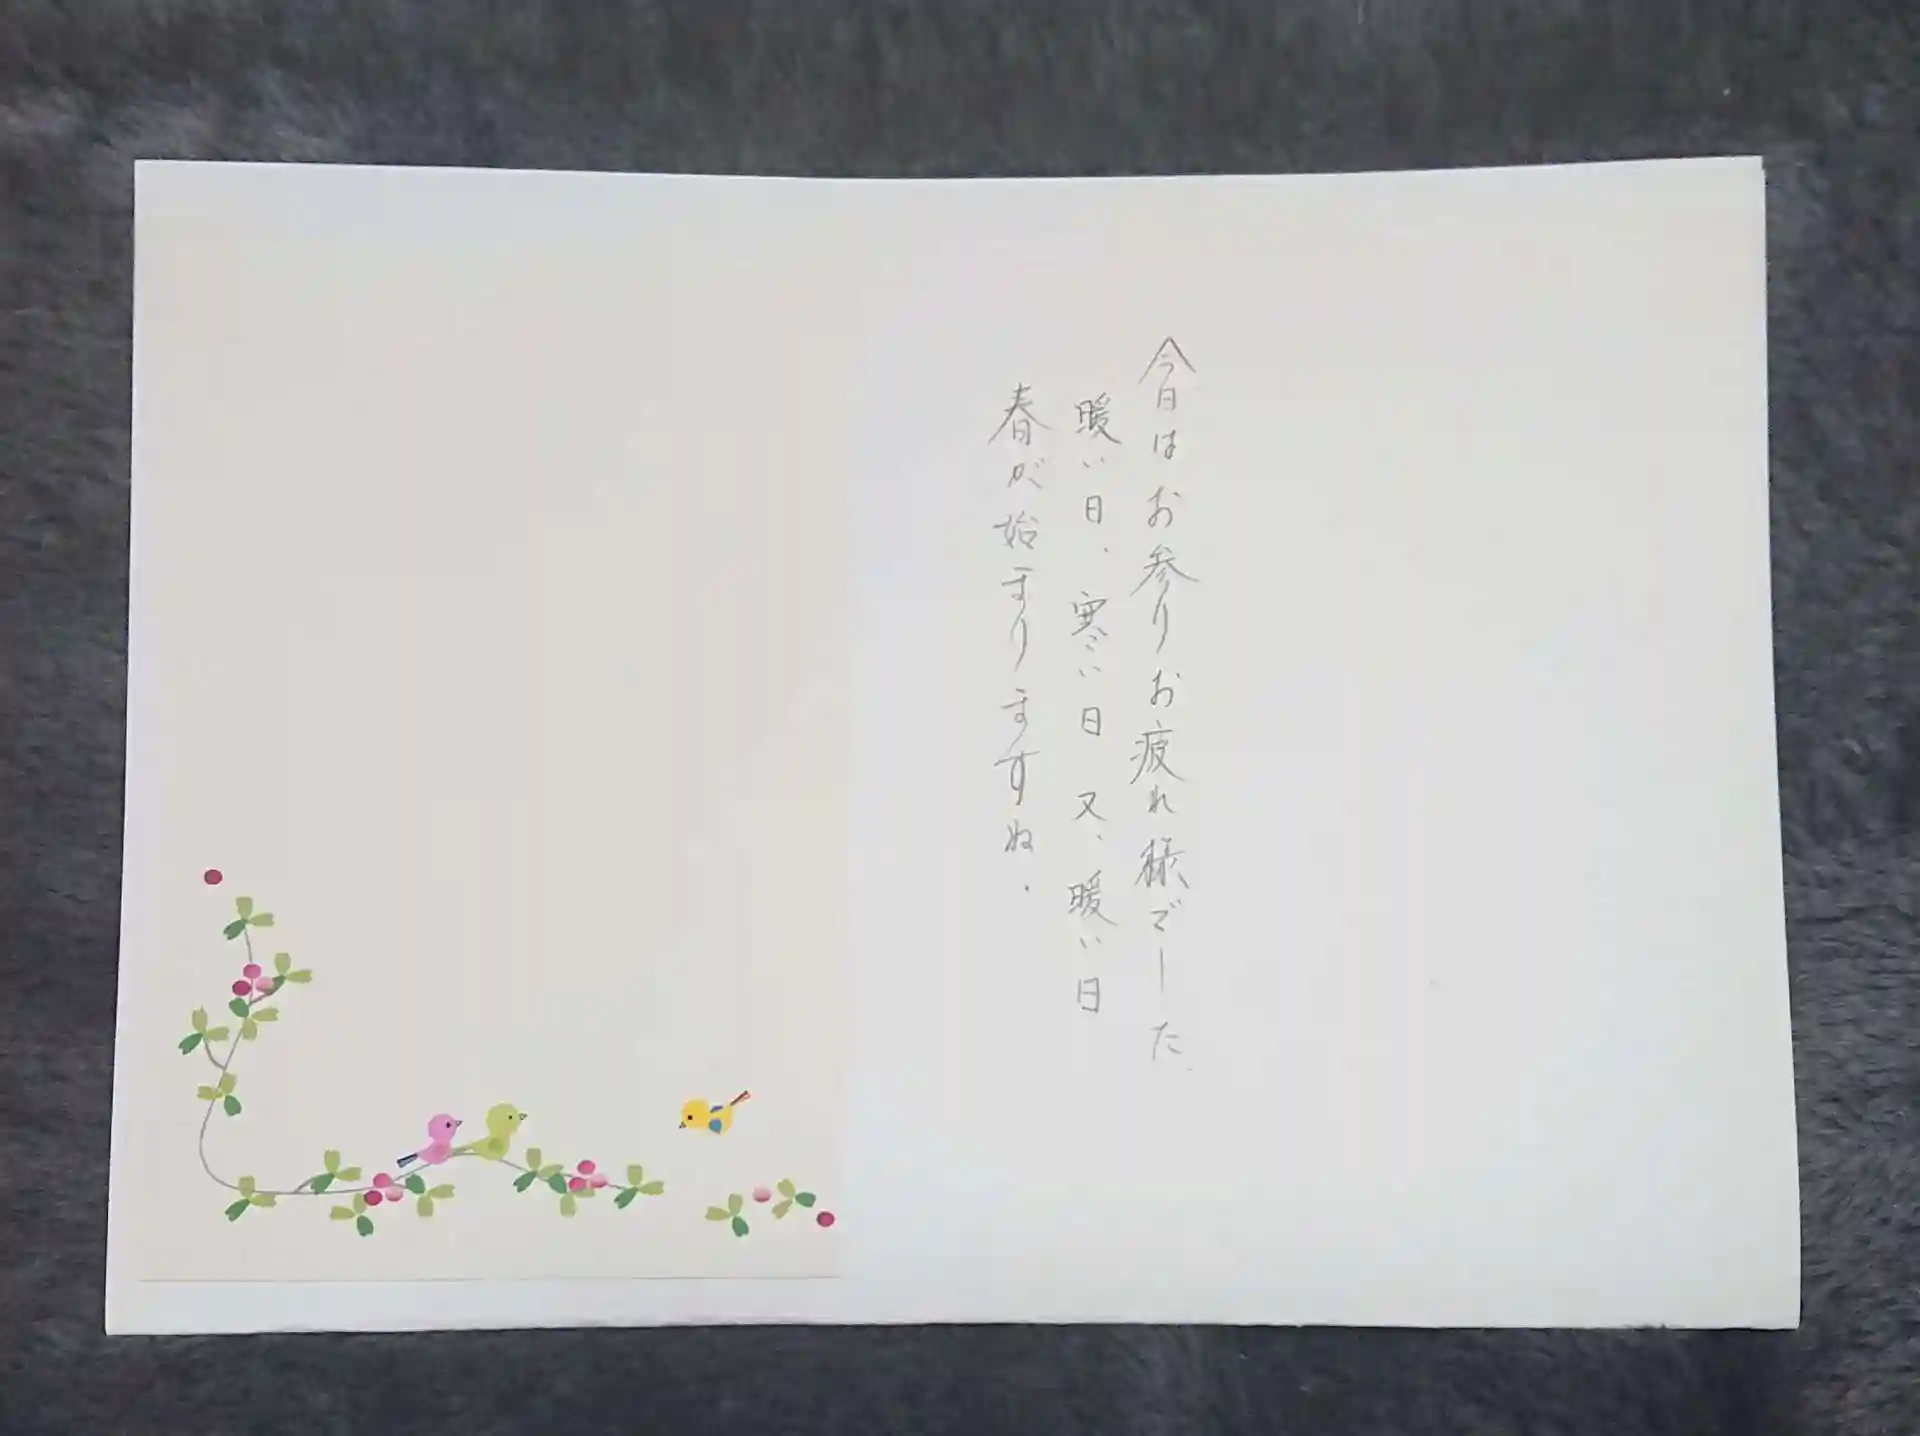 今日はお参りお疲れ様でした.
暖い日、寒い日 又、暖い日
春が始まりますね.